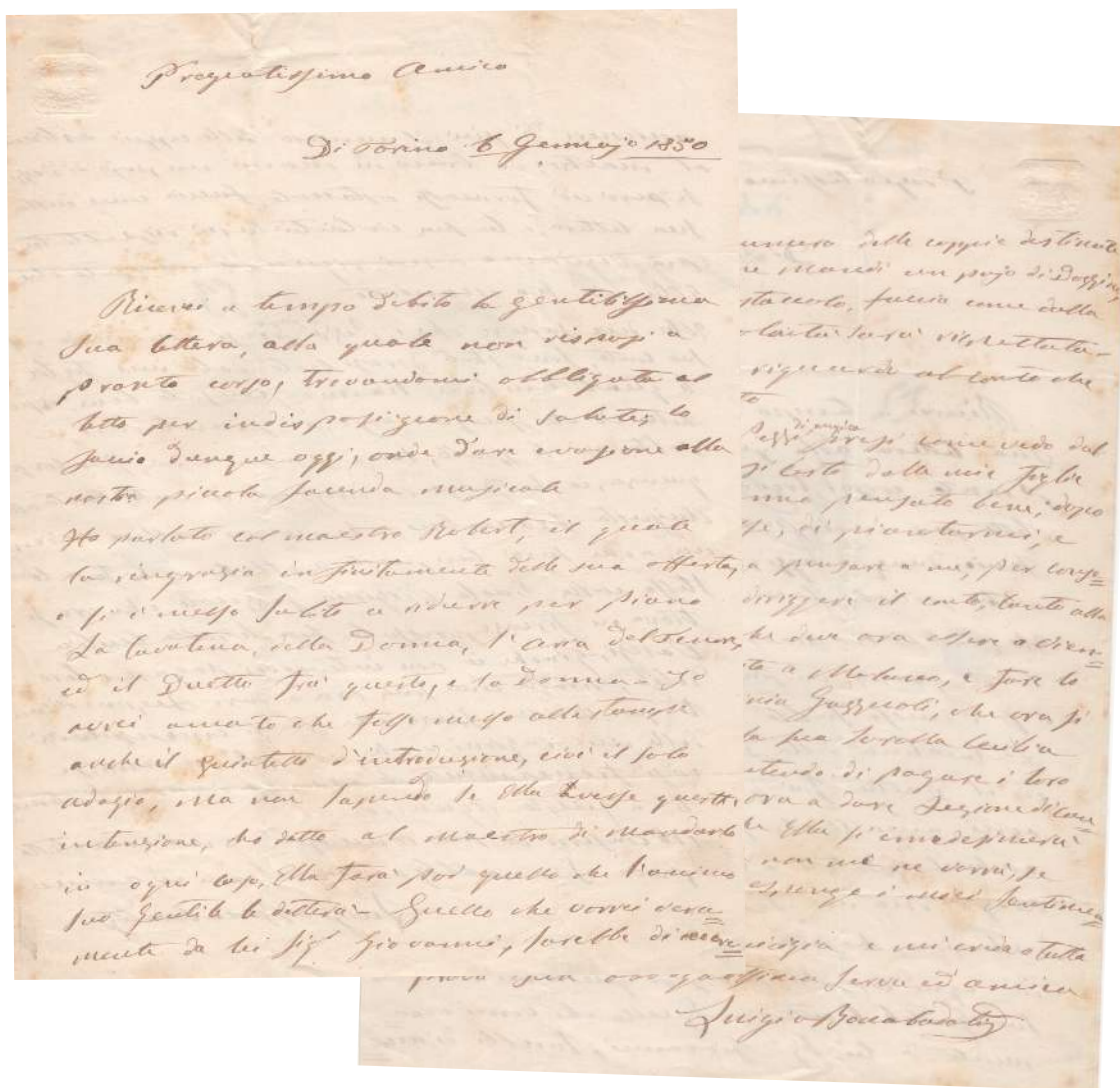 Pregiatissimo Amico
Di Torino 6 Gennajo 1850
Ricevei a tempo debito la gentilissima
sua lettera, alla quale non risposi a
pronto corso, trovandomi obbligata al
letto per indisposizione di salute; lo
faccio dunque oggi, onde dare evasione alla
nostra piccola facenda musicale
Ho parlato col maestro Robert, il quale
la ringrazia infinitamente della sua offerta,
e si è messo subito a ridurre per piano
La Cavatina della Donna, l'aria del Tenore,
ed il Duetto frà questo, e la Donna - Io
avrei amato che fosse messo alle stampe
anche il quintetto d'introduzione, cioè il solo
adagio, ma non sapendo se Ella avesse questa
intenzione, ho detto al maestro di mandarlo
in ogni caso, Ella farà poi quello che l'animo
suo gentile le detterà - Quello che vorrei vera=
mente da lei Sigr Giovanni, sarebbe di
numero delle coppie destinate
mandi un pajo di Dozzine
faccia come della
sarà rispettata -
riguardo al conto che
pezzi di musica presi come vedo dal
dalla mia figlia
pensato bene, dopo
di piantarmi, e
a pensare a me, per
diriggere il conto, tanto alla
che deve ora essere a
a Malacco, e fare lo
Gazzuoli, che ora si
la sua sorella Cecilia
di pagare i loro
ora a dare Lezione di
Ella si
non me ne vorrà, se
i miei sentimen=
e mi creda a tutta
prova sua serva ed amica
Luigia Boccabadati